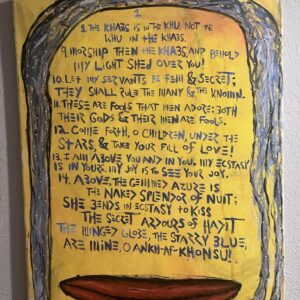 1
8. THE KHABS IS IN THE KHU, NOT THE
KHU IN THE KHABS.
9. WORSHIP THEN THE KHABS AND BEHOLD
MY LIGHT SHED OVER YOU!
10. LET MY SERVANTS BE FEW & SECRET:
THEY SHALL RULE THE MANY & THE KNOWN.
11. THESE ARE FOOLS THAT MEN ADORE: BOTH
THEIR GODS & THEIR MEN ARE FOOLS.
12. COME FORTH, O CHILDREN, UNDER THE
STARS, & TAKE YOUR FILL OF LOVE!
13. I AM ABOVE YOU AND IN YOU. MY ECSTASY
IS IN YOURS. MY JOY IS TO SEE YOUR JOY.
14. ABOVE, THE GEMMED AZURE IS
THE NAKED SPLENDOR OF NUIT;
SHE BENDS IN ECSTASY TO KISS
THE SECRET ARDOURS OF HADIT
THE WINGED GLOBE, THE STARRY BLUE,
ARE MINE, O ANKH-AF-KHONSU!